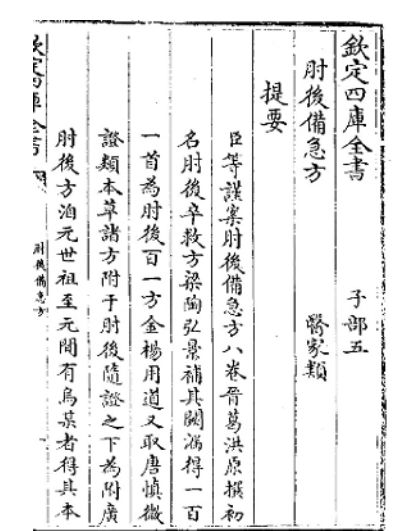 欽定四庫全書 子部五
肘後備急方 醫家類
提要
臣等謹案肘後備急方八卷晉葛洪原撰初
名肘後卒救方梁陶弘景補其闕漏得一百
一首為肘後百一方金楊用道又取唐慎微
證類本草諸方附于肘後隨證之下為附廣
肘後方洎元世祖至元間有烏某者得其本
欽定四庫全書
肘後備急方